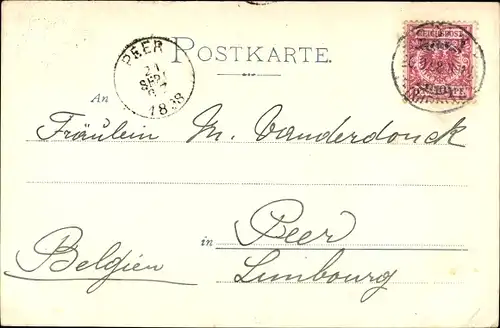 POSTKARTE.
PEER
1898
REICHSPOST
An
Fräulein M. Vanderdonck
in Peer
Belgien
Limbourg